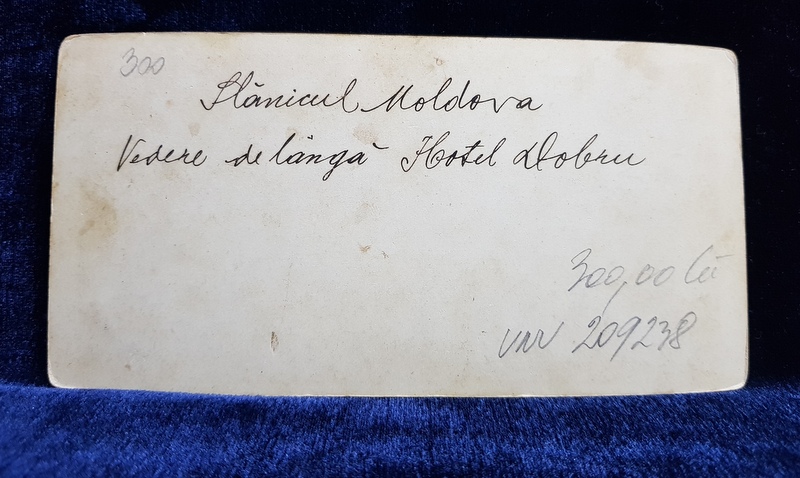 300
Slănicul Moldova
Vedere de lângă Hotel Dobru
300,00 lei
VNV 209238